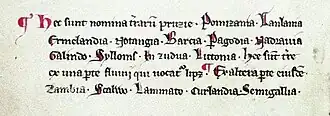 ¶ Hec sunt nomina t̃rarũ pruzie. Pomizania. Lanlania
Ermelandia. Notangia. Barcia. Pagodia. Nadrauia
Galindo. Syllonis. In zudua. Littonia. hee sũt t̃re
ex una pte fluuii qui uocat᷑ lipz. ¶ Ex altera pte eiusdẽ
Zambia. Scalwo. Lammato. Curlandia. Semigallia.